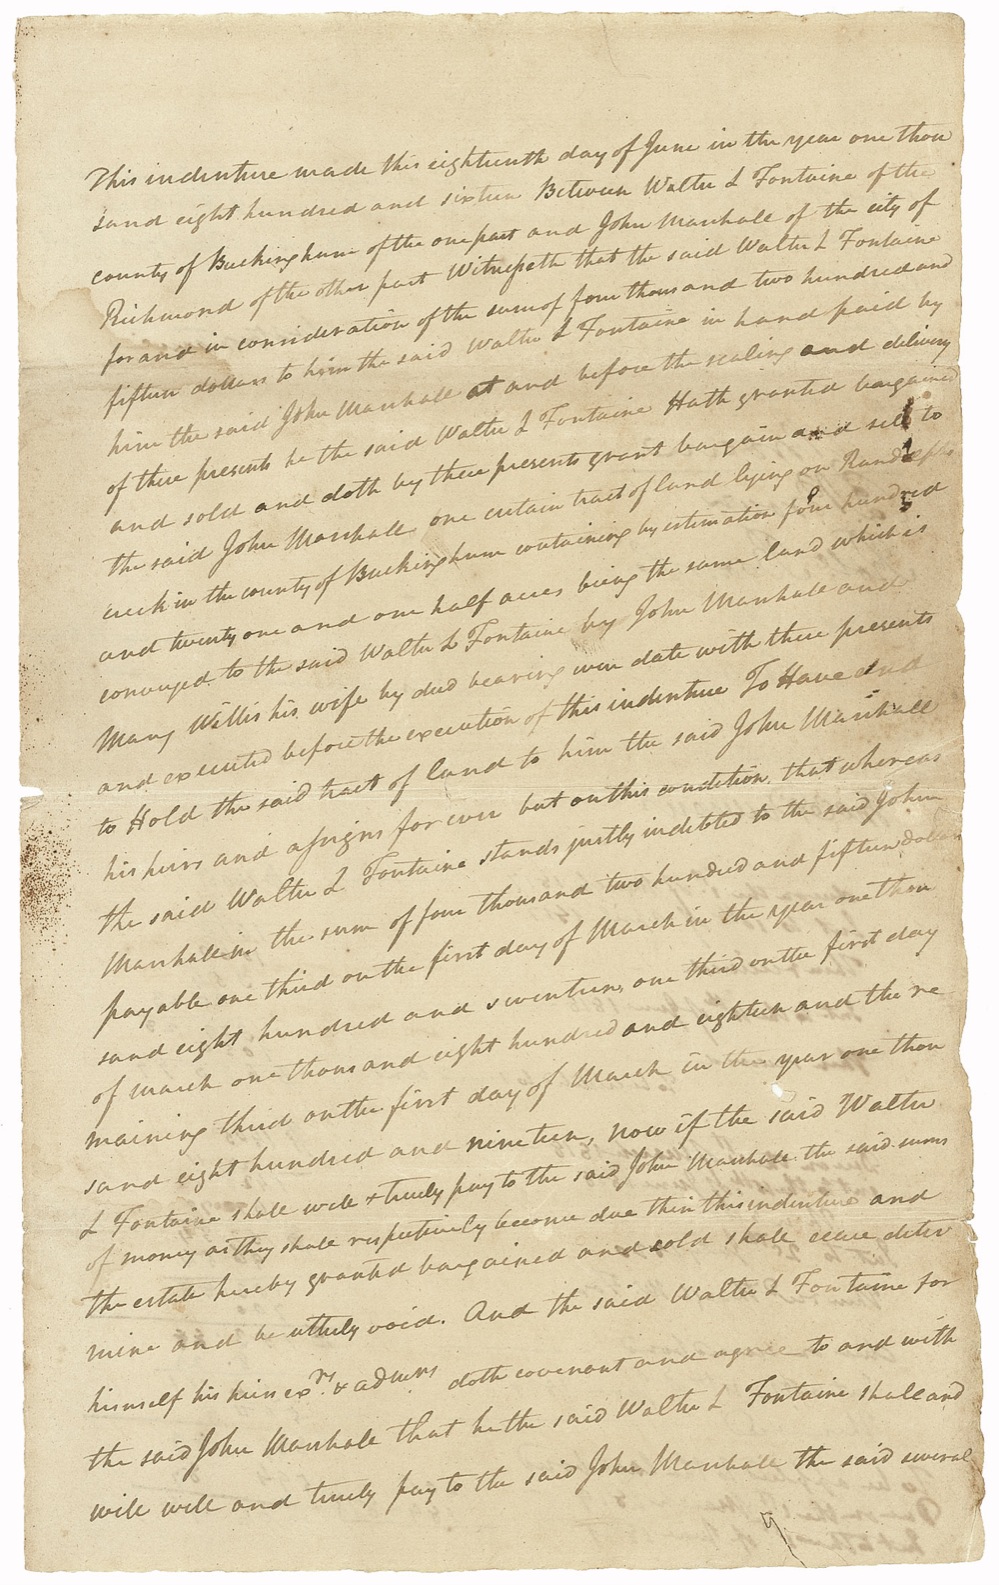 This indenture made this eighteenth day of June in the year one thou
sand eight hundred and sixteen Between Walter L Fontaine of the
county of Buckingham of the one part and John Marshall of the city of
Richmond of the other part Witnesseth that the said Walter L Fontaine
for and in consideration of the sum of four thousand two hundred and
fifteen dollars to him the said Walter L Fontaine in hand paid by
him the said John Marshall at and before the sealing and delivery
of these presents he the said Walter L Fontaine Hath granted bargained
and sold and doth by these presents grant bargain and sell to
the said John Marshall one certain tract of land lying on Randolphs
creek in the county of Buckingham containing by estimation four hundred
and twenty one and one half acres being the same land which is
conveyed to the said Walter L Fontaine by John Marshall and
Mary Willis his wife by deed bearing even date with these presents
and executed before the execution of this indenture To Have and
to Hold the said tract of land to him the said John Marshall
his heirs and assigns for ever but on this condition that whereas
the said Walter L Fontaine stands justly indebted to the said John
Marshall in the sum of four thousand two hundred and fifteen dollars
payable one third on the first day of March in the year one thou
sand eight hundred and seventeen, one third on the first day
of march one thousand eight hundred and eighteen and the re
maining third on the first day of March in the year one thou
sand eight hundred and nineteen, now if the said Walter
L Fontaine shall well & truely pay to the said John Marshall the said sums
of money as they shall respectively become due then this indenture and
the estate hereby granted bargained and sold shall cease deter
mine and be utterly void. And the said Walter L Fontaine for
himself his heirs exrs. & admrs doth covenant and agree to and with
the said John Marshall that he the said Walter L Fontaine shall and
will well and truely pay to the said John Marshall the said several